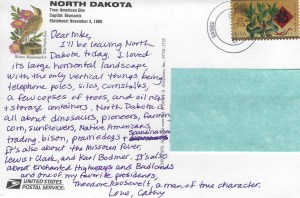 NORTH DAKOTA
Tree: American Elm
Capital: Bismarck
Statehood: November 2, 1889
Dear Mike,
I'll be leaving North
Dakota today. I loved
its large horizontal landscape,
with the only vertical things being
telephone poles, silos, cornstalks,
a few copses of trees, and oil rigs
+ storage containers. North Dakota is
all about dinosaurs, pioneers, farming
corn, sunflowers, Native Americans,
trading, bison, prairie dogs +
Scandinavians
It's also about the Missouri River,
Lewis + Clark, and Karl Bodmer. It's also
about enchanted highways and Badlands
and one of my favorite presidents,
Theodore Roosevelt, a man of true character.
Love, Cathy
UNITED STATES
POSTAL SERVICE